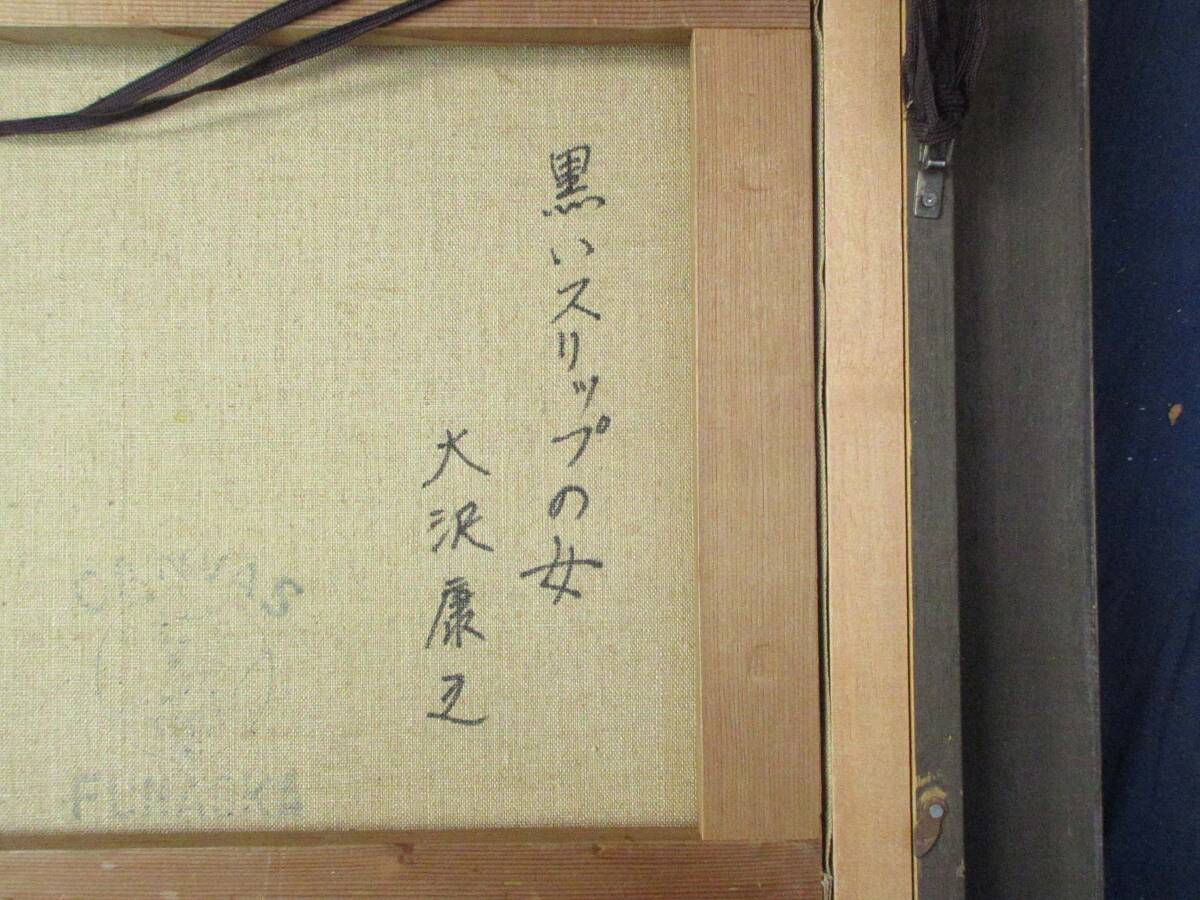 黒いスリップの女
大沢康之